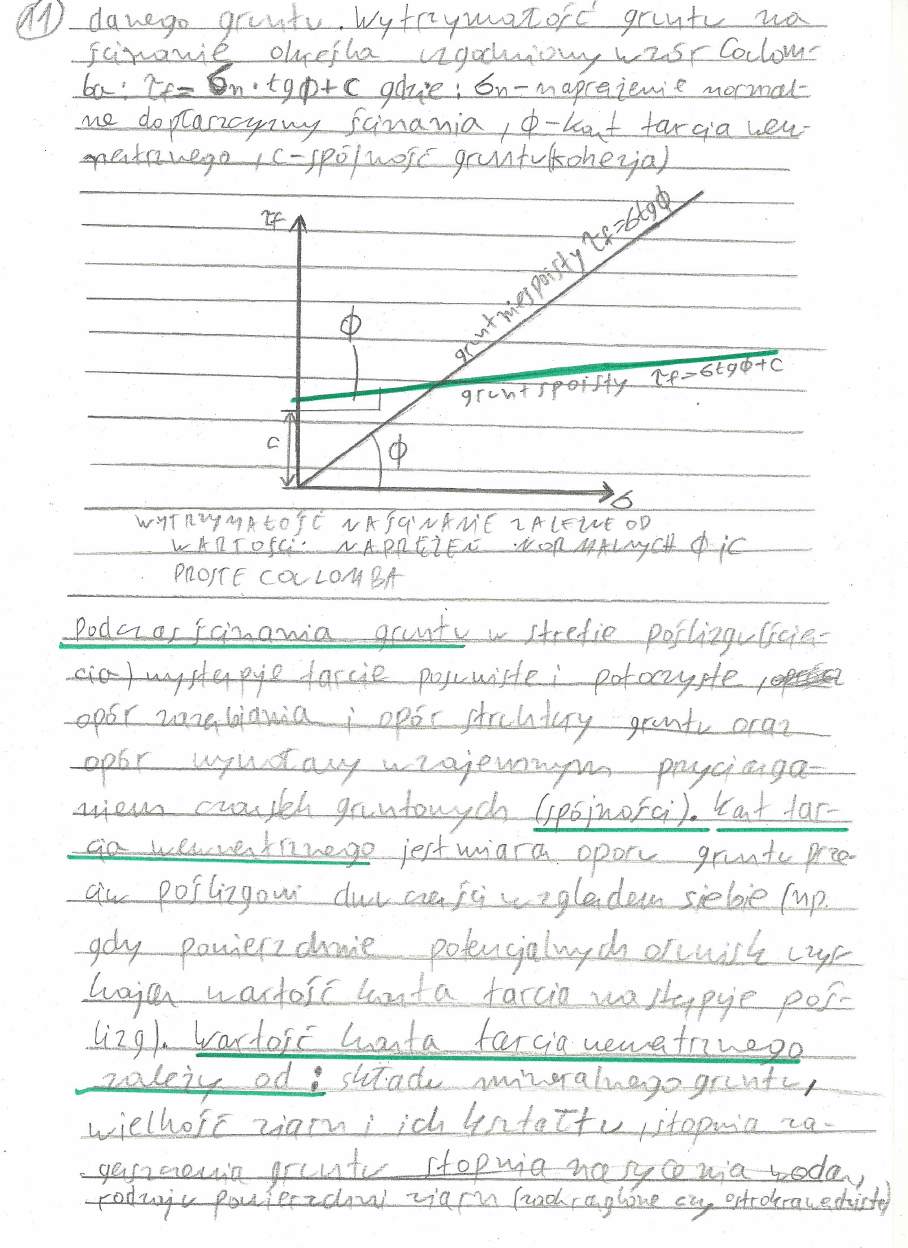 11 danego gruntu. Wytrzymałość gruntu na
ścinanie określa uzgodniony wzór Coulom-
ba: τf= σn·tgϕ+c gdzie: σn-naprężenie normal-
ne do płaszczyzny ścinania, ϕ-kąt tarcia wew-
nętrznego, c-spójność gruntu(kohezja)
τf
gruntniespoisty τf=σtgϕ
ϕ
τf=σtgϕ+c
gruntspoisty
c
ϕ
σ
WYTRZYMAŁOŚĆ NA ŚCINANIE ZALEŻNE OD
WARTOŚCI NAPRĘŻEŃ NORMALNYCH ϕ i C
PROSTE COULOMBA
Podczas ścinania gruntu w strefie poślizgu(ścię-
cia) występuje tarcie posuwiste i potoczyste,
opór zazębiania i opór struktury gruntu oraz
opór wywołany wzajemnym przyciąga-
niem cząstek gruntowych (spójności). Kąt tar-
cia wewnętrznego jest miarą oporu gruntu prze-
ciw poślizgowi dwu części względem siebie (np.
gdy powierzchnie potencjalnych osuwisk uzys-
kają wartość kąta tarcia następuje poś-
lizg). Wartość kąta tarcia wewnętrznego
zależy od: składu mineralnego gruntu,
wielkość ziarn i ich kształtu, stopnia za-
gęszczenia gruntu stopnia nasycenia wodą,
rodzaju powierzchni ziarn (zaokrąglone czy ostrokrawędziste)